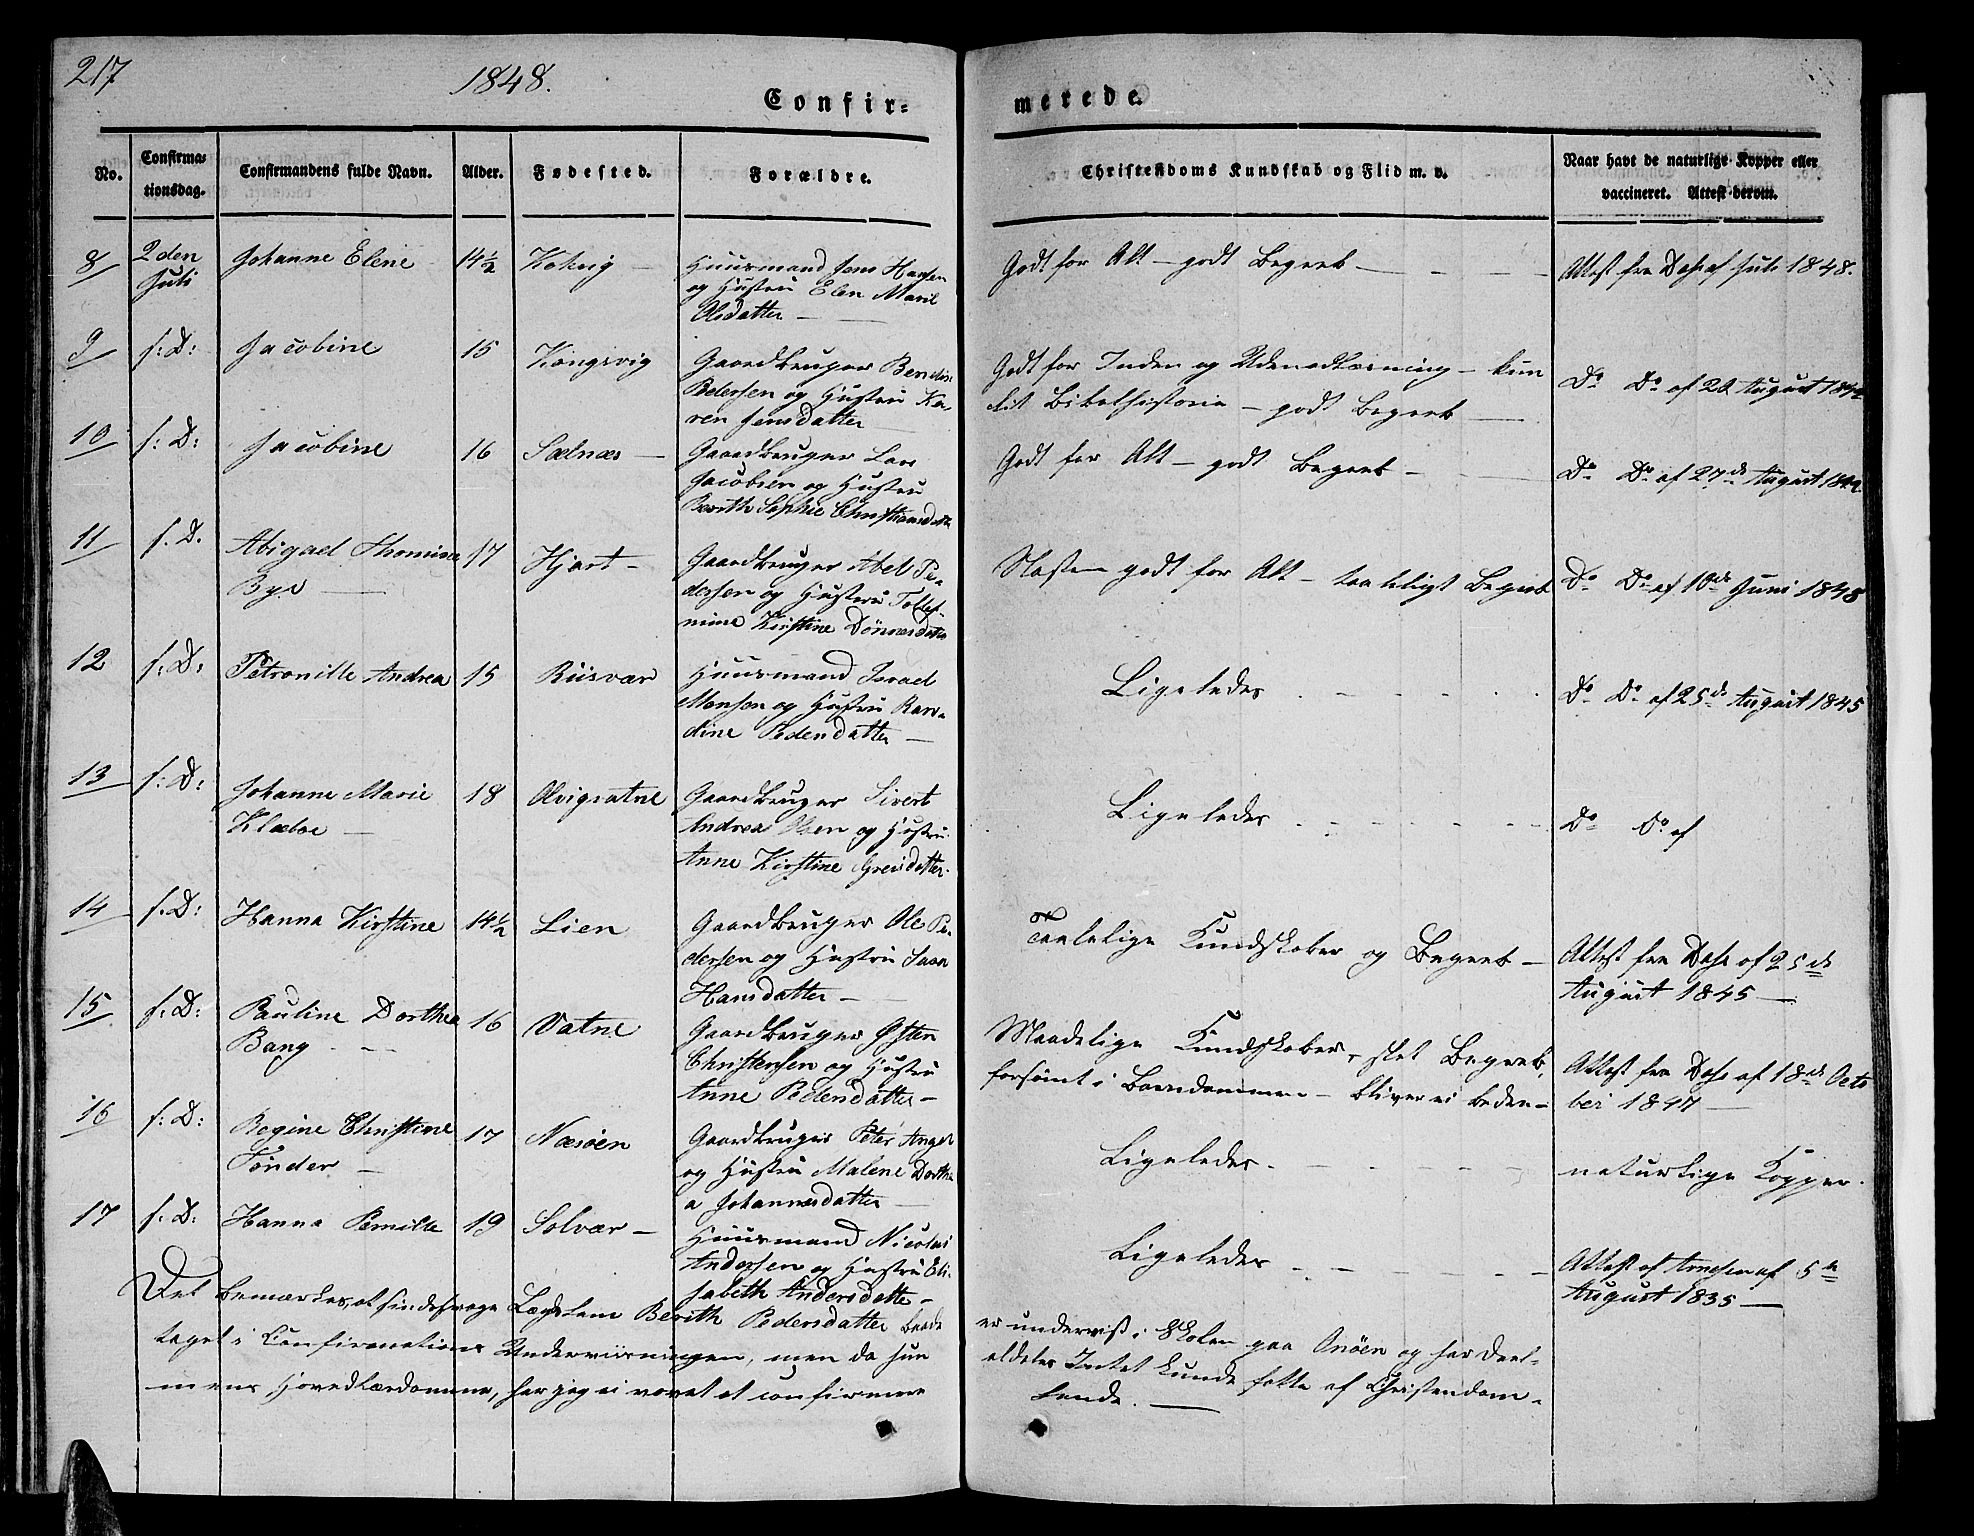 217
1848.
Confir-
merede.
No.
Confirma-
tionsdag.
Confirmandens fulde Navn.
Alder.
Fødested.
Forældre.
Christendoms Kundskab og Flid m. v.
Naar havt de naturlige Kopper eller
vaccineret. Attest derom.
8 2den Juli Johanne Elene 14½
Huusmand Jens Hansen
og Hustru Elen Marie
Olsdatter
Godt for Alt - godt Begreb
Attest fra Dass af Juli 1848.
9 s: D: Jacobine 15 Kongsvig
Gaardbruger
Pedersen og Hustru Ka-
ren Jensdatter
Godt for Inden og Udenadlæsning - kun
lit Bibelhistorie - godt Begreb
Do Do af August
10 s: D: Jacobine 16 Sælnæs
Gaardbruger Lars
Jacobsen og Hustru
Berith Sophie Christiansdatter
Godt for Alt - godt Begreb
Do Do af 27de August
11 s. D. Abigael Thomine 17 Hjart
Bye
Gaardbruger Abel Pe-
dersen og Hustru
mine Kirstine Dønnesdatter
Næsten godt for Alt - taaleligt Begreb
Do Do af 10de Juni 1848
12 s: D: Petronille Andrea 15 Riisvær
Huusmand Israel
Monsen og Hustru Karo-
line Pedersdatter
Ligeledes
Do Do af 25de August 1845
13 s: D: Johanne Marie 18
Klæboe
Gaardbruger Sivert
Andreas Olsen og Hustru
Anne Kirstine Greisdatter
Ligeledes
Do Do af
14 s. D: Hanna Kirstine 14½ Lien
Gaardbruger Ole Pe-
dersen og Hustru
Hansdatter
Taalelige Kundskaber og Begreb
Attest fra Dass af 25de
August 1845
15 s: D: Pauline Dorthea 16 Vatne
Bang
Gaardbruger Østen
Christensen og Hustru
Anne Pedersdatter
Maadelige Kundskaber, slet Begreb,
forsømt i Barndommen - bliver ei beden-
Attest fra Dass af 18de Octo
ber 1847
16 s: D: Regine Christine 17 Næsøen
Tønder
Gaardbruger Peter Angel
og Hustru Malene Dorthe
a Johannesdatter
Ligeledes
naturlige Kopper.
17 s: D: Hanna Pernille 19 Solvær
Huusmand Nicolai
Andersen og Hustru Eli-
sabeth Andersdatter
Ligeledes
Attest af Arnesen af 5te
August 1835
Det bemærkes, at sindssvage Lægdslem Berith Pedersdatter
er underviist i Skolen paa Onøen og har deel-
taget i Confirmations Underviisningen, men da hun
aldeles Intet kunde fatte af Christendom-
mens Hovedlærdomme, har jeg ei vovet at confirmere
hende.